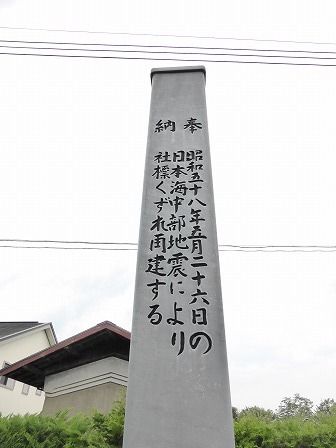 奉納
昭和五十八年五月二十六日の
日本海中部地震により
社標くずれ再建する